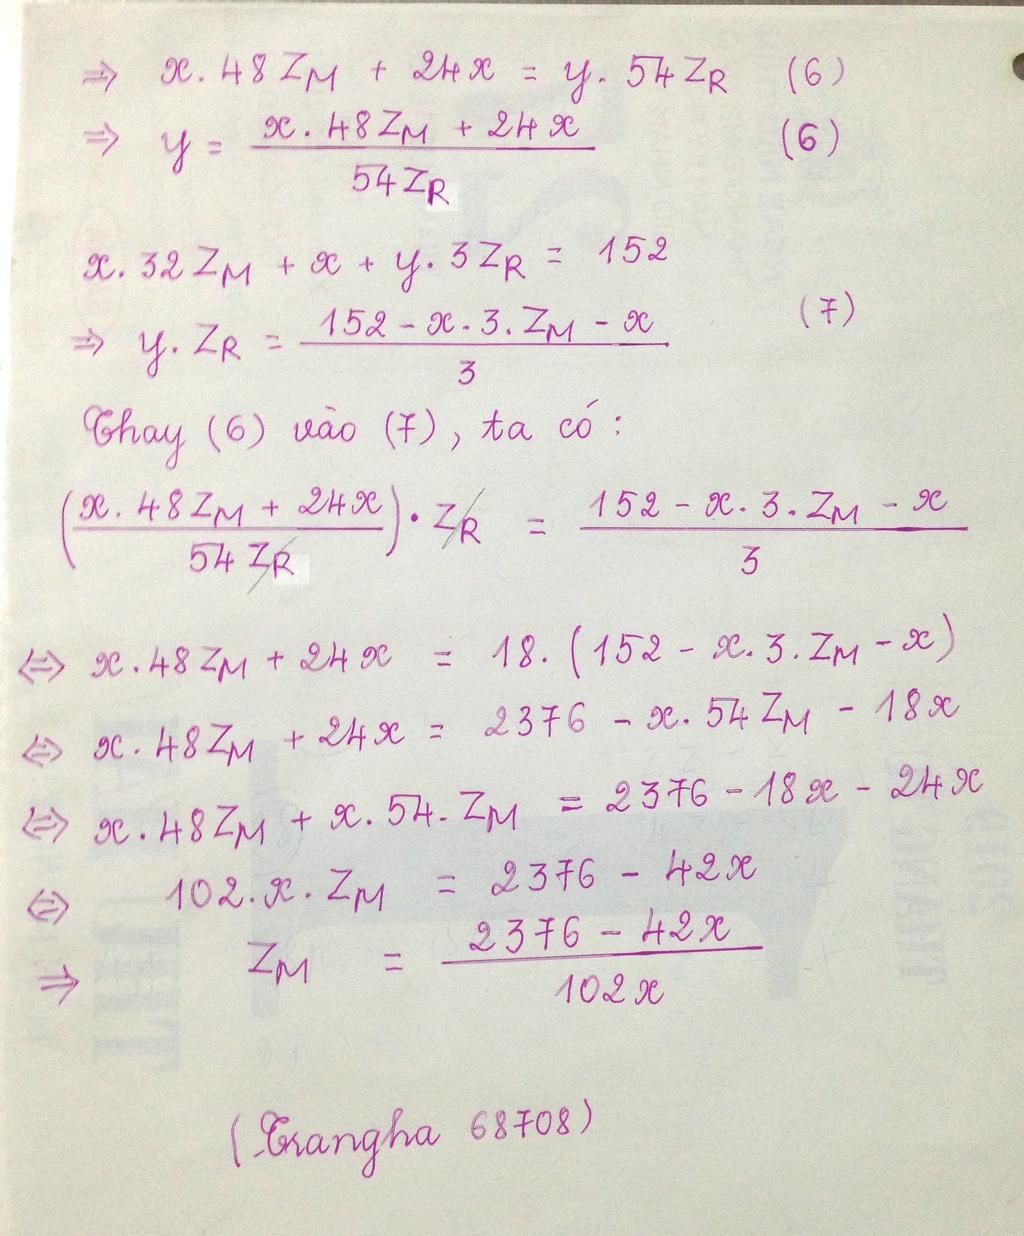 ⇒ x.48Z_M + 24x = y.54Z_R (6)
⇒ y = (x.48Z_M + 24x) / (54Z_R) (6)
x.32Z_M + x + y.3Z_R = 152
⇒ y.Z_R = (152 - x.3.Z_M - x) / 3 (7)
Thay (6) vào (7), ta có:
((x.48Z_M + 24x) / (54Z_R)) . Z_R = (152 - x.3.Z_M - x) / 3
⇔ x.48Z_M + 24x = 18.(152 - x.3.Z_M - x)
⇔ x.48Z_M + 24x = 2376 - x.54Z_M - 18x
⇔ x.48Z_M + x.54.Z_M = 2376 - 18x - 24x
⇔ 102.x.Z_M = 2376 - 42x
⇒ Z_M = (2376 - 42x) / (102x)
(Trangha 68708)